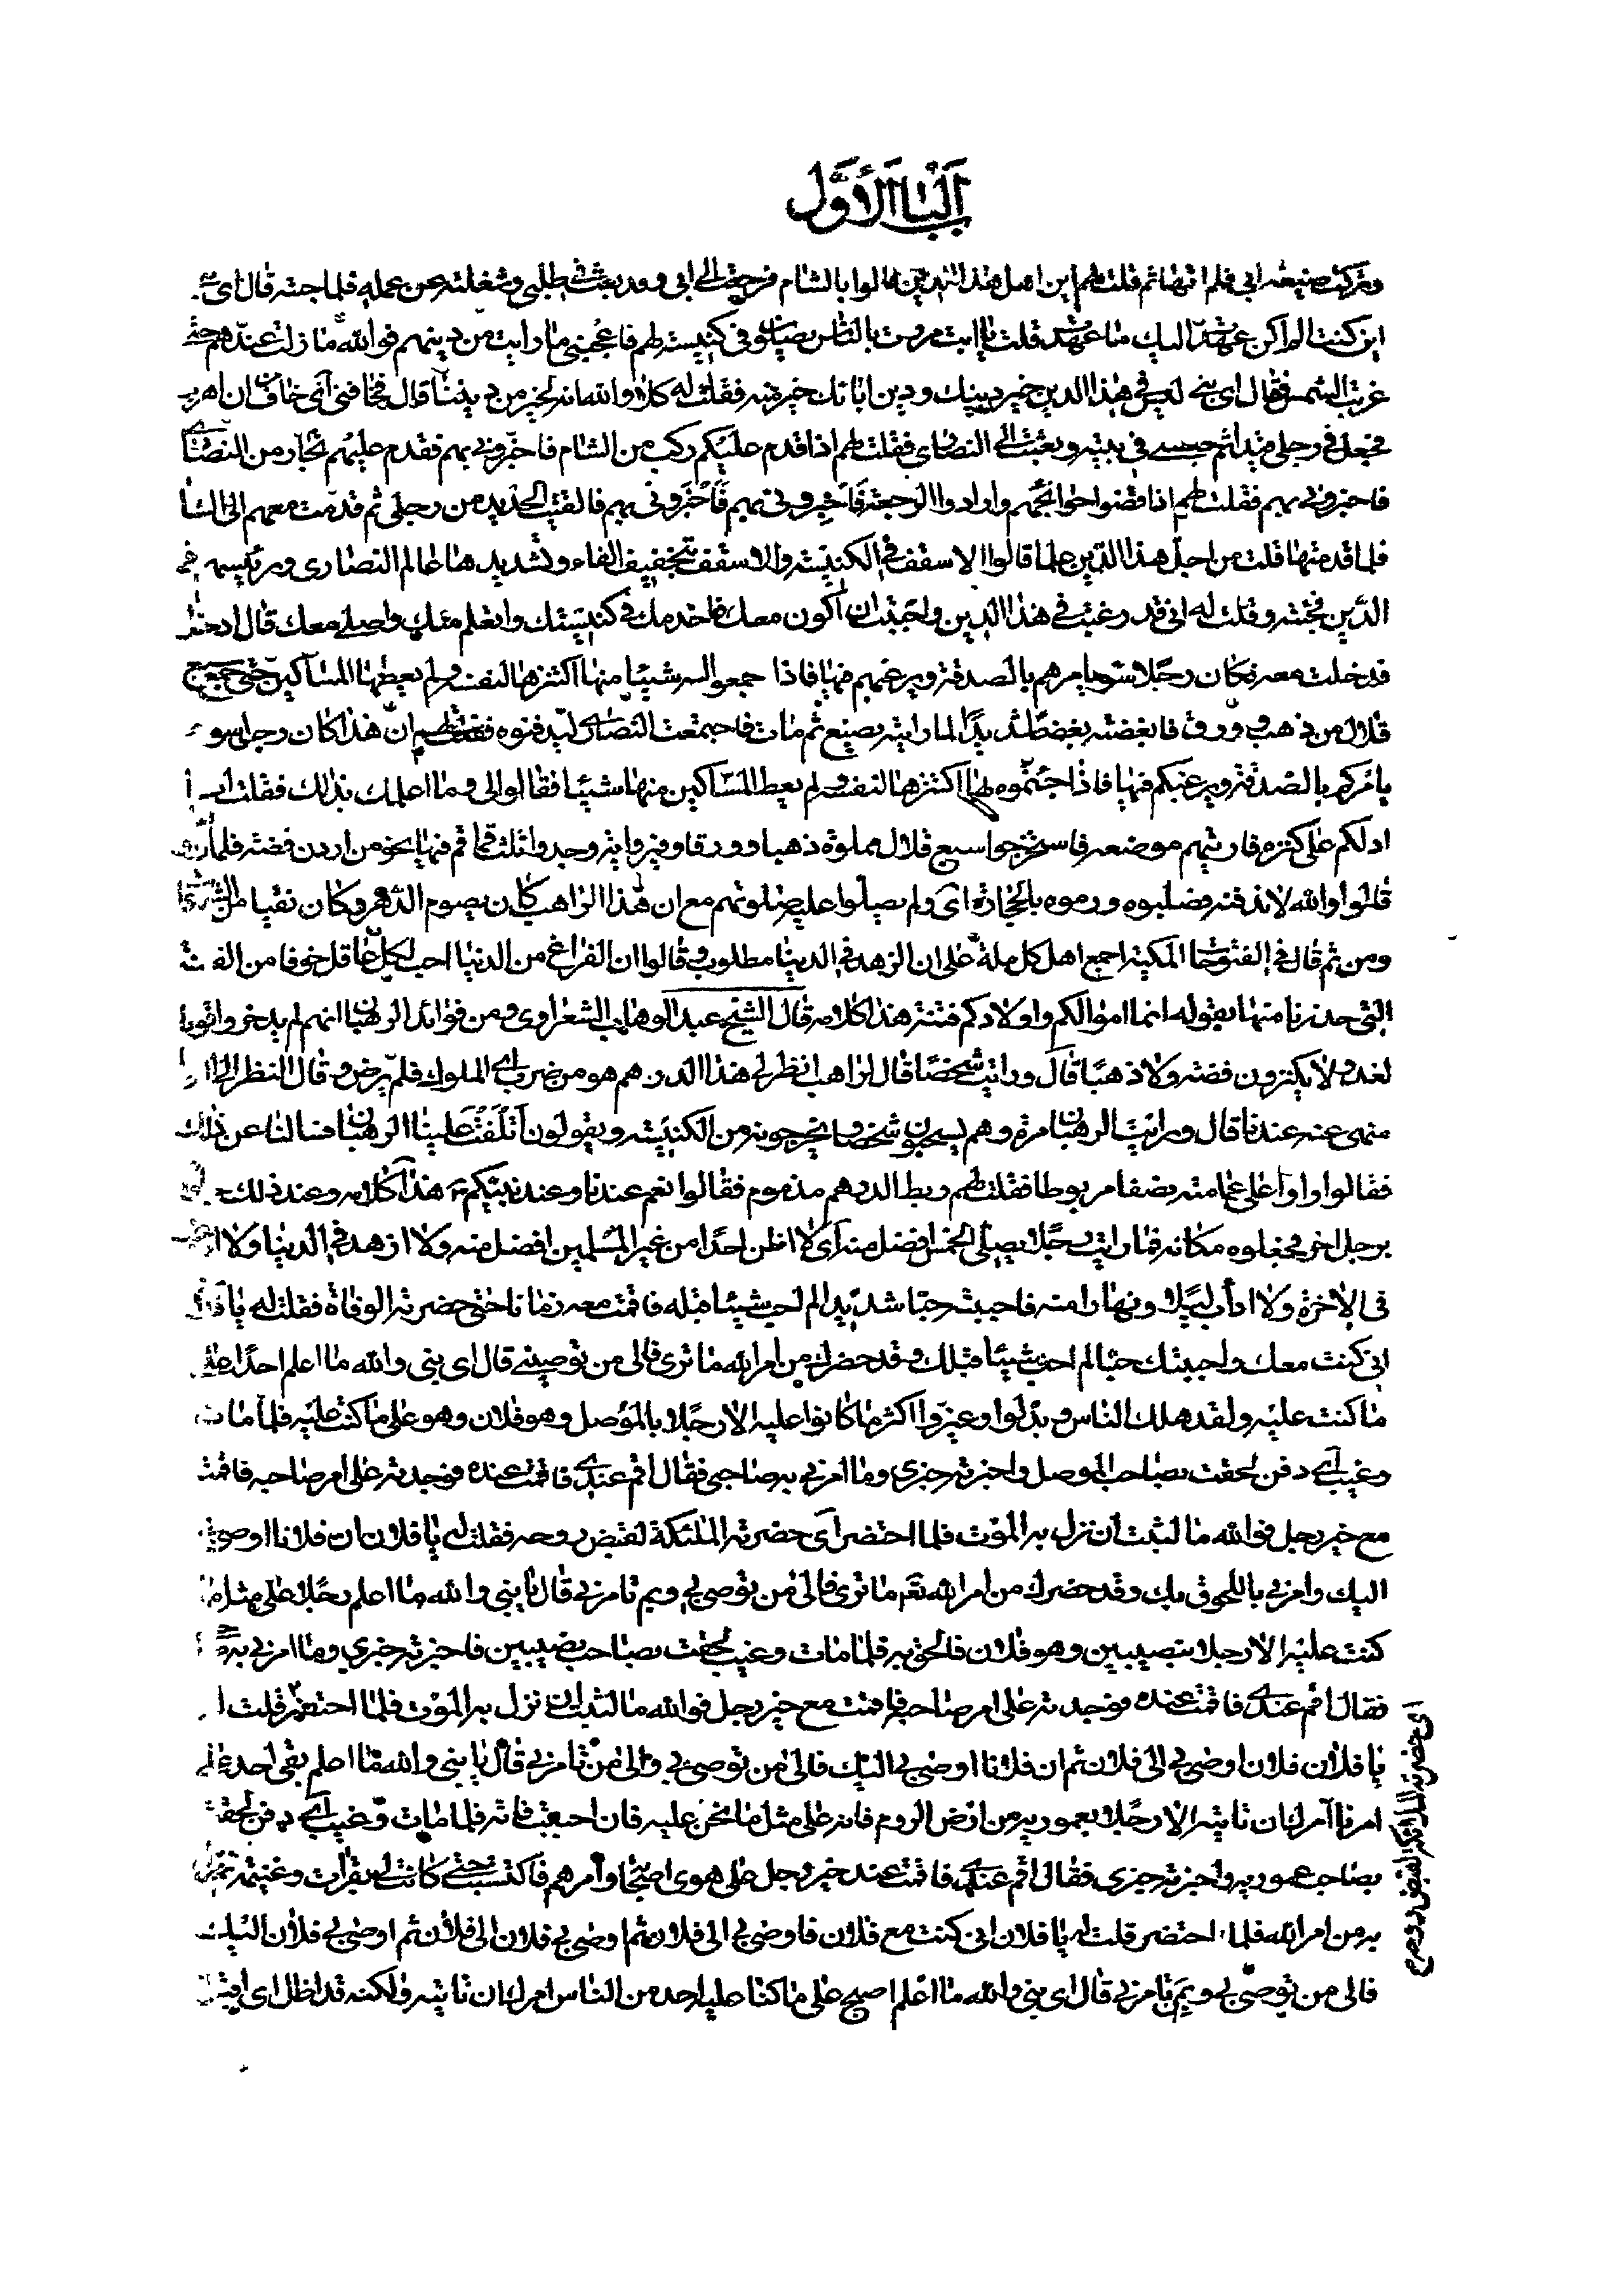 الباب الأوّل
وتركت ضيعة ابي فلم اتها ثم قلت لهم اين اصل هذا الدين قالوا بالشام فرجعت الى ابي وقد بعث في طلبي وشغلته عن عمله فلما جئته قال اى بنى
اين كنت الم اكن عهدت اليك ما عهدت قلت يا ابت مررت بالناس يصلون في كنيسة لهم فاعجبني ما رايت من دينهم فوالله ما زلت عندهم حتى
غربت الشمس فقال اى بنى ليس في هذا الدين خير دينك ودين ابائك خير منه فقلت له كلا والله انه لخير من ديننا قال فخافني اى خاف منى ان اهرب
فجعل في رجلي قيدا ثم حبسنى في بيته وبعثت الى النصارى فقلت لهم اذا قدم عليكم ركب من الشام فاخبروني بهم فقدم عليهم تجار من النصارى
فاخبروني بهم فقلت لهم اذا قضوا حوائجهم وارادوا الرجعة فاخبروني بهم فاخبروني بهم فالقيت الحديد من رجلي ثم قدمت معهم الى الشام
فلما قدمتها قلت من اجل هذا الدين علما قالوا الاسقف في الكنيسة والاسقف بتخفيف الفاء وتشديدها عالم النصارى ورئيسهم في
الدين فجئته وقلت له اني قد رغبت في هذا الدين واحببت ان اكون معك فاخدمك في كنيستك واتعلم منك واصلى معك قال ادخل
فدخلت معه فكان رجلا سوء يامرهم بالصدقة ويرغبهم فيها فاذا جمعوا اليه شيئا منها اكتنزها لنفسه ولم يعطها المساكين حتى جمع سبع
قلال من ذهب وورق فابغضته بغضا شديدا لما رايته يصنع ثم مات فاجتمعت النصارى ليدفنوه فقلت لهم ان هذا كان رجل سوء
يامركم بالصدقة ويرغبكم فيها فاذا جئتموه بها اكتنزها لنفسه ولم يعط المساكين منها شيئا فقالوا لي وما اعلمك بذلك فقلت انا
ادلكم على كنزه فاريتهم موضعه فاستخرجوا سبع قلال مملوة ذهبا وورقا وفي رواية وجد واثلث قماقم فيها نحو من اردب فضة فلما راوها
قالوا والله لا ندفنه فصلبوه ورموه بالحجارة اى ولم يصلوا عليه صلوتهم مع ان هذا الراهب كان يصوم الدهر وكان نقيا من الشهوات
ومن ثم قال في الفتوحات المكية اجمع اهل كل ملة على ان الزهد في الدنيا مطلوب وقالوا ان الفراغ من الدنيا احب لكل عاقل خوفا من الفتنة
التي حذرنا منها بقوله انما اموالكم واولادكم فتنة هذا كلامه قال الشيخ عبد الوهاب الشعراوى ومن فوائد الرهبان انهم لم يدخروا قوتا
لغد ولا يكنزون فضة ولا ذهبا قال ورايت شخصا قال لراهب انظر لي هذا الدرهم هو من ضرب اى الملوك فلم يرض وقال النظر الى الدنيا
منهى عنه عندنا قال ورايت الرهبان مرة وهم يسحبون شخصا ويخرجونه من الكنيسة ويقولون اتلفت علينا الرهبان فسالنا عن ذلك
فقالوا راوا على عمامته نصفا مربوطا فقلت لهم ربط الدرهم مذموم فقالوا نعم عندنا وعند نبيكم هذا كلامه وعند ذلك جاؤا
برجل اخر فجعلوه مكانه فما رايت رجلا يصلى الخمس افضل منه اى لا اظن احدا من غير المسلمين افضل منه ولا ازهد في الدنيا ولا ارغب
في الاخرة ولا اداب ليلا ونهارا منه فاحببته حبا شديدا لم احب شيئا مثله فاقمت معه زمانا حتى حضرته الوفاة فقلت له يا فلان
اني كنت معك واحببتك حبا لم احب شيئا قبلك وقد حضرك من امر الله ما ترى فالى من توصينى قال اى بني والله ما اعلم احدا على
ما كنت عليه ولقد هلك الناس وبدلوا وغيروا اكثر ما كانوا عليه الا رجلا بالموصل وهو فلان وهو على ما كنت عليه فلما مات
وغيب اى دفن لحقت بصاحب الموصل واخبرته خبري وما امرني به صاحبي فقال اقم عندى فاقمت عنده فوجدته على امر صاحبه فاقمت
مع خير رجل فوالله ما لبثت ان نزل به الموت فلما احتضر اى حضرته الملئكة لقبض روحه فقلت له يا فلان ان فلانا اوصى بي
اليك وامرني باللحوق بك وقد حضرك من امر الله تعم ما ترى فالى من توصي بي وبم تامرني قال يا بني والله ما اعلم رجلا على مثل ما
كنت عليه الا رجلا بنصيبين وهو فلان فالحق به فلما مات وغيب لحقت بصاحب نصيبين فاخبرته خبري وما امرني به صاحبي
فقال اقم عندى فاقمت عنده فوجدته على امر صاحبه فاقمت مع خير رجل فوالله ما لبث ان نزل به الموت فلما احتضر قلت له
يا فلان فلان اوصى بي الى فلان ثم ان فلانا اوصى بي اليك فالى من توصي بي والى من تامرني قال يا بني والله ما اعلم بقى احد على
امرنا آمرك ان تاتيه الا رجلا بعمورية من ارض الروم فانه على مثل ما نحن عليه فان احببت فاته فلما مات وغيب اى دفن لحقت
بصاحب عمورية واخبرته خبري فقال اقم عندى فاقمت عند خير رجل على هدى اصحابه وامرهم فاكتسبت حتى كانت لي بقرات وغنيمة ثم نزل
به من امر الله فلما احتضر قلت له يا فلان اني كنت مع فلان فاوصى بي الى فلان ثم اوصى بي فلان الى فلان ثم اوصى بي فلان اليك
فالى من توصي بي وبم تامرني قال اى بني والله ما اعلم اصبح على ما كنا عليه احد من الناس امرك ان تاتيه ولكنه قد اظل اى اقبل
اى حضرته الملائكة لقبض روحه